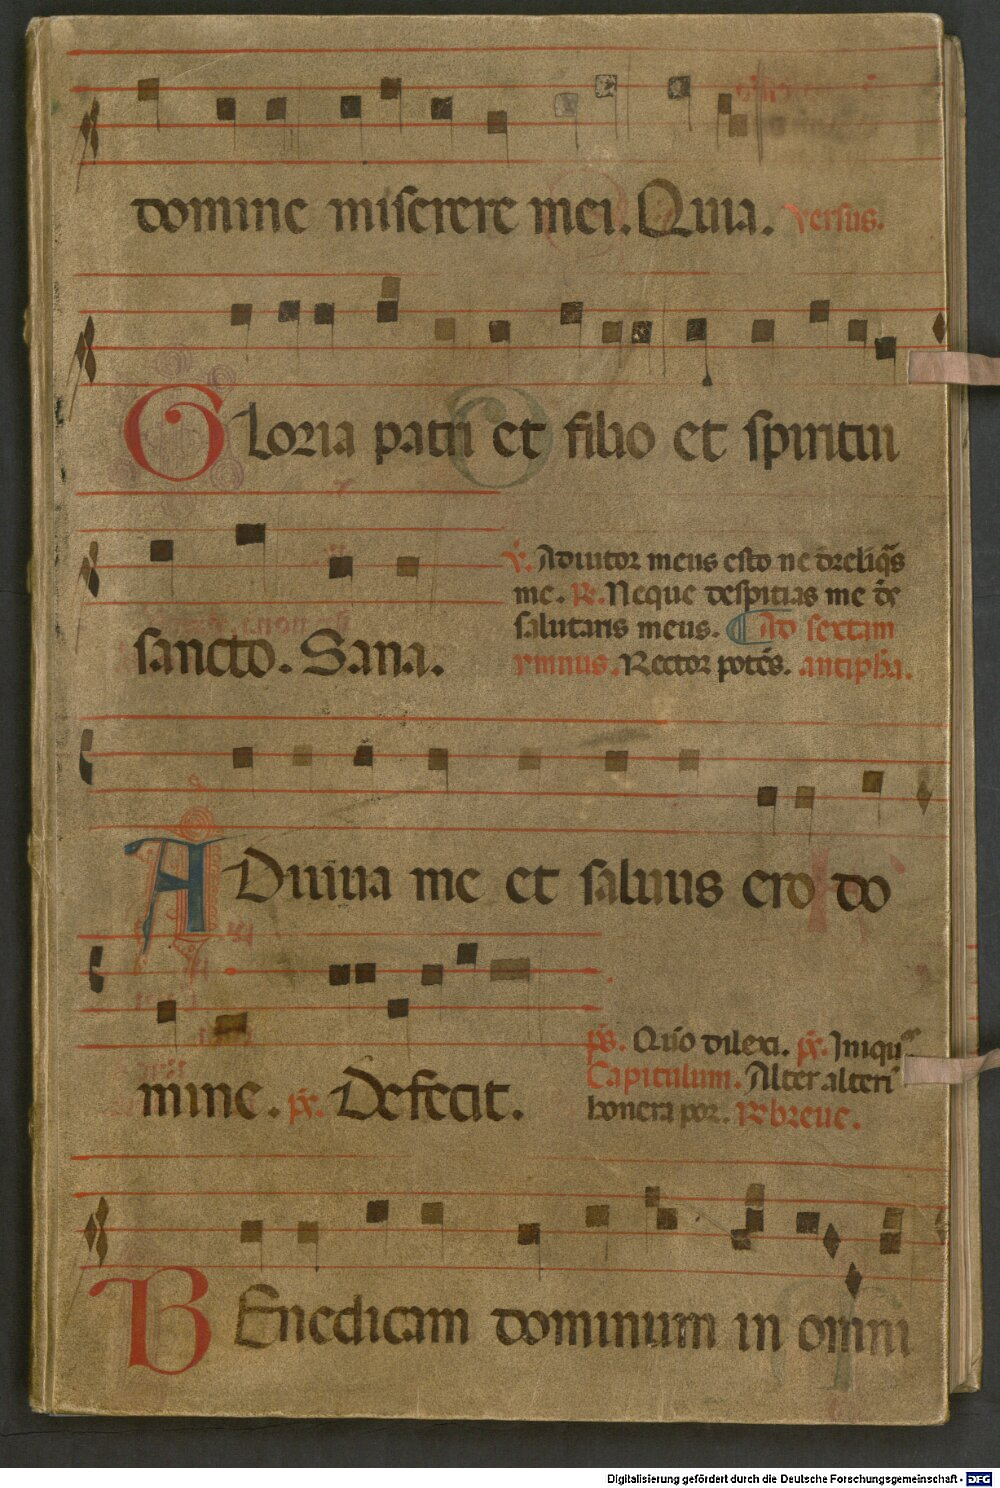 domine miserere mei. Quia. versus.
Gloria patri et filio et spiritui
sancto. Sana.
v. Adiutor meus esto ne derelīq̄s
me. R. Neque despitias me dē
salutaris meus. Ad sextam
ymnus. Rector potēs. antiph̄a.
ADiuua me et saluus ero do
mine. ps. Defecit.
ps. Quō dilexi. ps. Iniquos
Capitulum. Alter alteri'
honera por. R breue.
BEnedicam dominum in omni
Digitalisierung gefördert durch die Deutsche Forschungsgemeinschaft - DFG